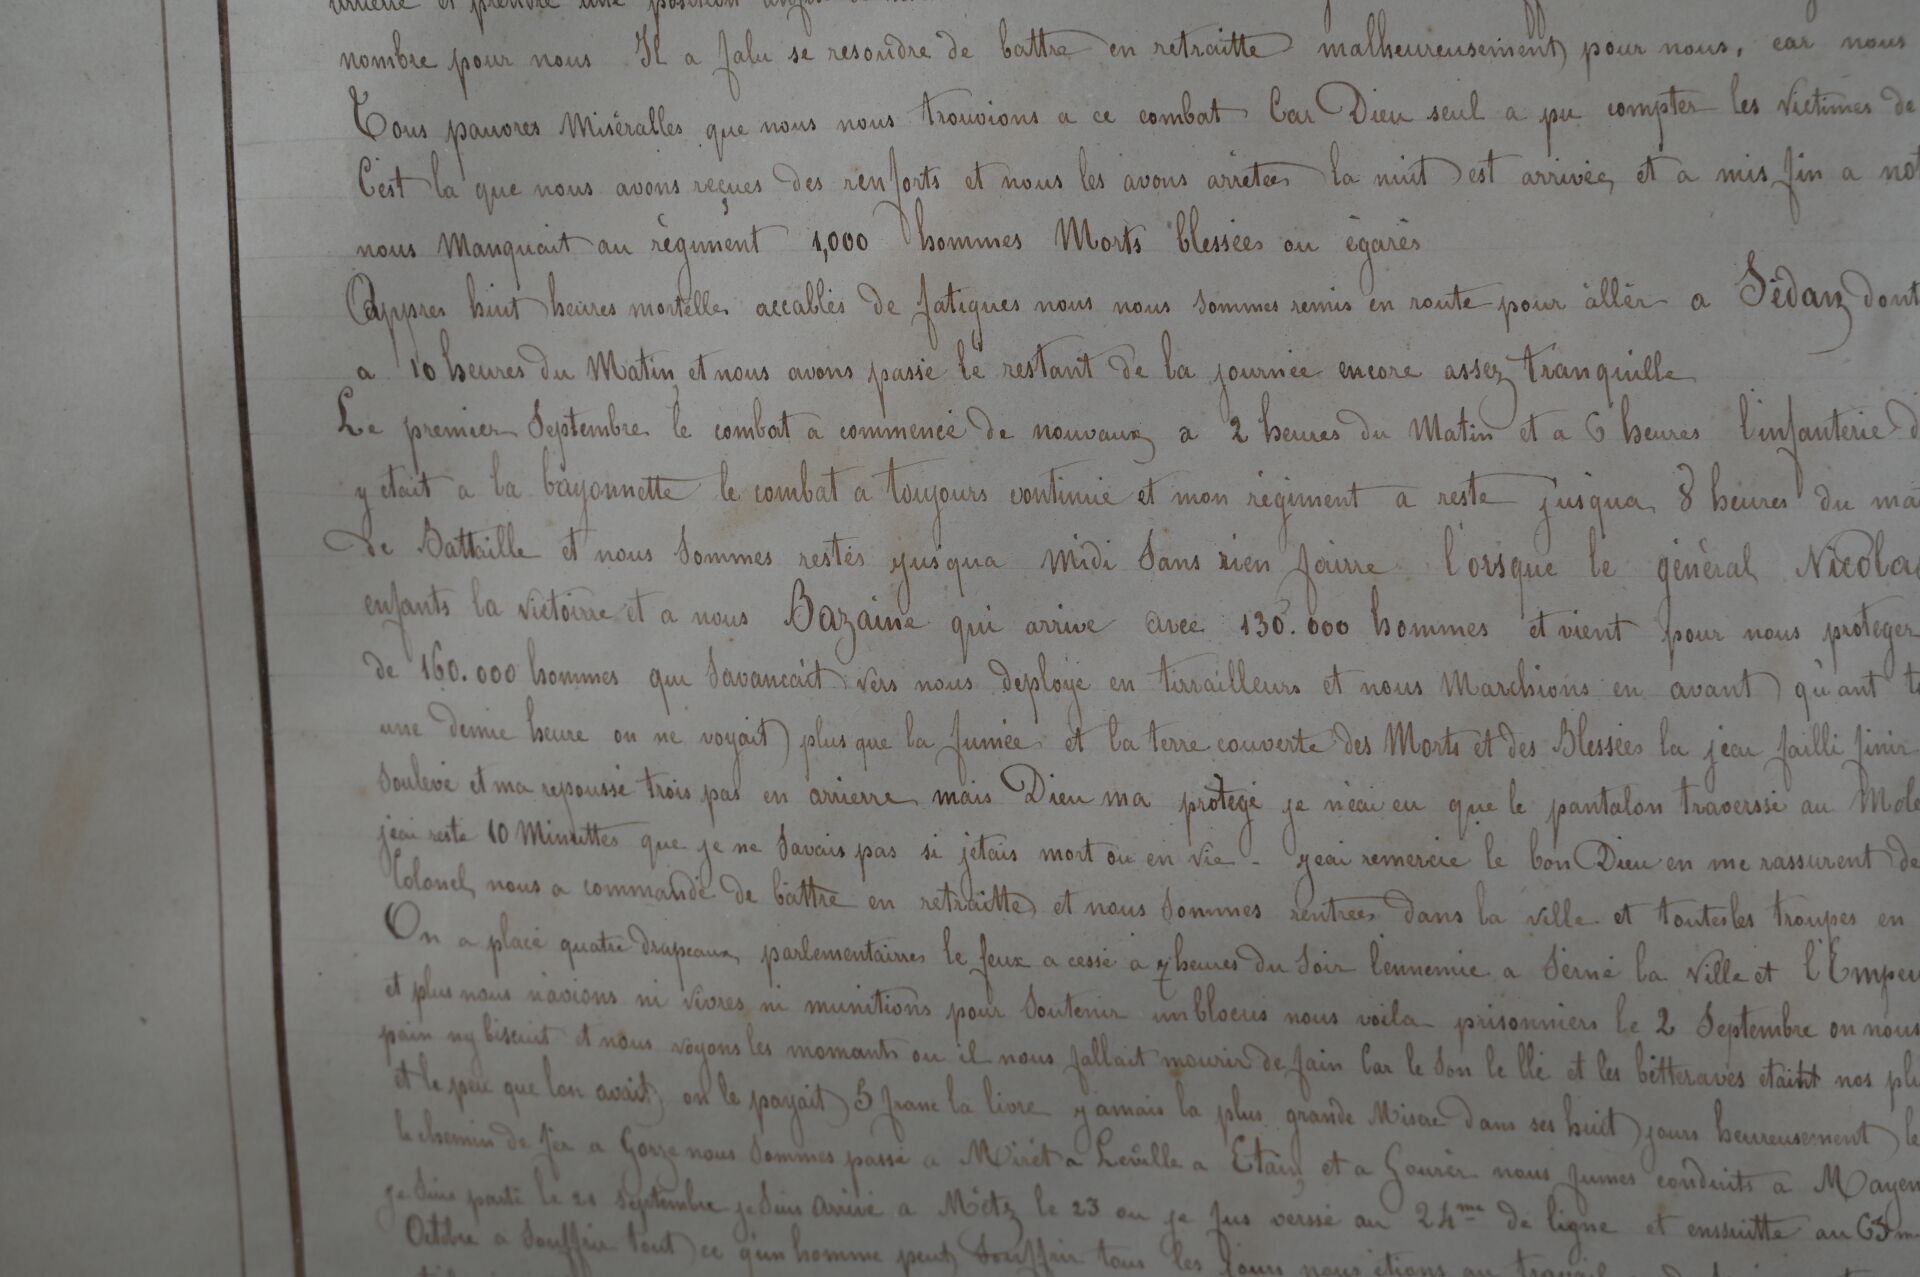 arrierre et prendre une position
nombre pour nous Il a falu se resoudre de battre en retraitte malheureusement pour nous, car nous
Tous pauvres Miséralles que nous nous trouvions a ce combat Car Dieu seul a pu compter les victimes de
C'est la que nous avons reçues des renforts et nous les avons arrétées la nuit est arrivée et a mis fin a not
nous Manquait au régiment 1,000 hommes Morts blessées ou égarés
Appres huit heures mortelles accablés de fatigues nous nous sommes remis en route pour aller a Sédan dont
a 10 heures du Matin et nous avons passé le restant de la journée encore assez tranquille
Le premier Septembre le combat a commencé de nouvaux a 2 heures du Matin et a 6 heures l'infanterie d
y était a la bayonnette le combat a toujours continué et mon régiment a resté jusqua 8 heures du ma
de Battaille et nous sommes restés jusqua Midi Sans rien fairre l'orsque le général Nicolas
enfants la victoirre et a nous Bazaine qui arrive avec 130.000 hommes et vient pour nous protéger
de 160.000 hommes qui Savancait vers nous deployé en tirrailleurs et nous Marchions en avant qu'ant t
une demie heure on ne voyait plus que la fumée et la terre couverte des Morts et des Blessées la jeai failli finir
soulevé et ma repoussé trois pas en arrierre mais Dieu ma protégé je n'eai eu que le pantalon traverssé au Mole
jeai resté 10 Minuttes que je ne Savais pas si jétais mort ou en vie - jeai remercié le bon Dieu en me rassurent de
Colonel nous a commandé de battre en retraitte et nous Sommes rentrées dans la ville et toutes les troupes en
On a placé quatre drapeaux parlementairres le feux a cessé a 7 heures du Soir l'ennemie a Serné la Ville et l'Empeu
et plus nous n'avions ni vivres ni munitions pour Soutenir un blocus nous voila prisonniers le 2 Septembre on nous
pain ny biscuit et nous voyons les momants ou il nous fallait mourir de fain Car le Son le Blé et les bétteraves étaint nos plu
et le peu que lon avait on le payait 5 franc la livre jamais la plus grande Misere dans ses huit jours heureusement le
le chemin de fer a Gorze nous Sommes passé a a Leville a Etain et a nous fumes conduits a Mayen
je Suis parti le 20 Septembre je Suis arrivé a Métz le 23 ou je fus verssé au 24me de ligne et enssuitte au 63m
Octobre a Souffrir tout ce qu'un homme peut Souffrir tous les Jours nous étions au travail